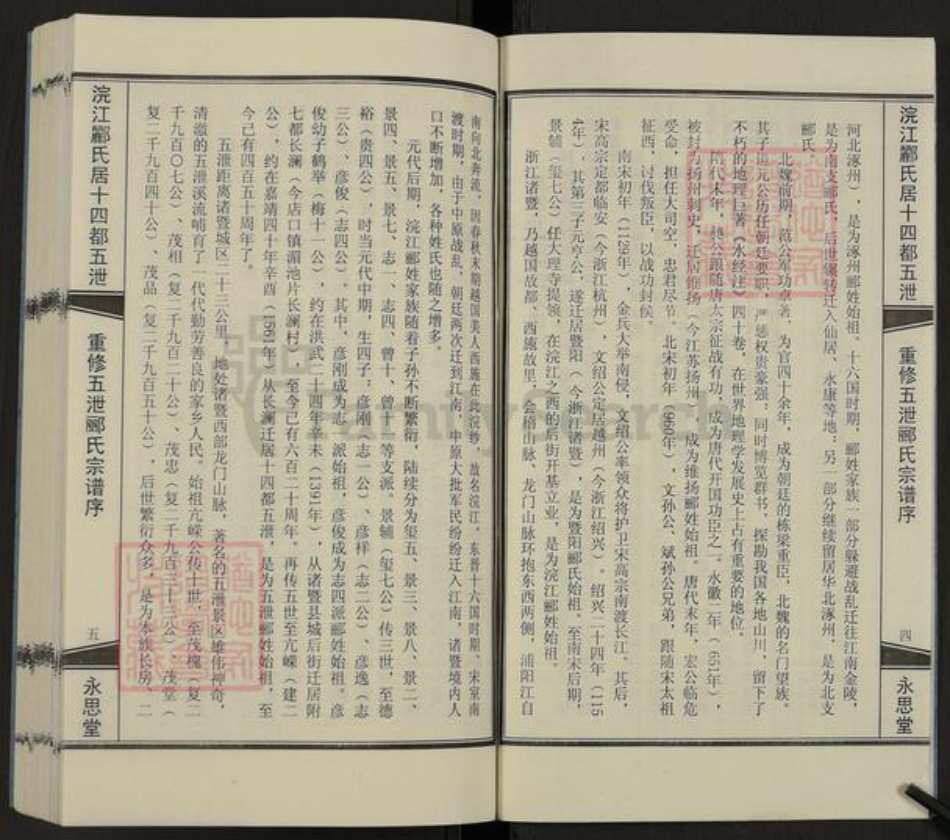 浣江郦氏居十四都五泄
重修五泄郦氏宗谱序
四
永思堂
河北涿州），是为涿州郦姓始祖。十六国时期，郦姓家族一部分躲避战乱迁往江南金陵，
是为南支郦氏，后世辗转迁入仙居、永康等地；另一部分继续留居华北涿州，是为北支
郦氏。
北魏前期，范公军功卓著，为官四十余年，成为朝廷的栋梁重臣，北魏的名门望族。
其子道元公历任朝廷要职，严惩权贵豪强；同时博览群书，探勘我国各地山川，留下了
不朽的地理巨著《水经注》四十卷，在世界地理学发展史上占有重要的地位。
隋代末年，魏公跟随唐太宗征战有功，成为唐代开国功臣之一。永徽二年（651年），
被封为扬州刺史，迁居维扬（今江苏扬州），成为维扬郦姓始祖。唐代末年，宏公临危
受命，担任大司空，忠君尽节。北宋初年（960年），文孙公、斌孙公兄弟，跟随宋太祖
征西，讨伐叛臣，以战功封侯。
南宋初年（1129年），金兵大举南侵，文绍公率领众将护卫宋高宗南渡长江。其后，
宋高宗定都临安（今浙江杭州），文绍公定居越州（今浙江绍兴）。绍兴二十四年（115
4年），其第三子元亨公，遂迁居暨阳（今浙江诸暨），是为暨阳郦氏始祖。至南宋后期，
景辅（玺七公）任大理寺提领，在浣江之西的后街开基立业，是为浣江郦姓始祖。
浙江诸暨，乃越国故都、西施故里，会稽山脉、龙门山脉环抱东西两侧，浦阳江自
南向北奔流，因春秋末期越国美人西施在此浣纱，故名浣江。东晋十六国时期、宋室南
渡时期，由于中原战乱，朝廷两次迁到江南，中原大批军民纷纷迁入江南，诸暨境内人
口不断增加，各种姓氏也随之增多。
元代后期，浣江郦姓家族随着子孙不断繁衍，陆续分为玺五、景三、景八、景二、
景四、景五、景七、志一、志四、曾十、曾十一等支派。景辅（玺七公）传三世，至德
裕（贵四公），时当元代中期，生四子：彦刚（志一公）、彦样（志二公）、彦逸（志
三公）、彦俊（志四公）。其中，彦刚成为志一派始祖，彦俊成为志四派郦姓始祖。彦
俊幼子鹤举（梅十一公）　约在洪武二十四年辛未（1391年），从诸暨县城后街迁居附
七都长澜（今店口镇湄池片长澜村），至今已有六百二十周年。再传五世至亢嵘（建二
公），约在嘉靖四十年辛酉（1561年，从长澜迁居十四都五泄，是为五泄郦姓始祖，至
今已有四百五十周年了。
五泄距离诸暨城区二十三公里，地处诸暨西部龙门山脉，著名的五泄景区雄伟神奇，
清澈的五泄溪流哺育了一代代勤劳善良的家乡人民。始祖亢嵘公传十世，至茂槐（复二
千九百〇七公）、茂相（复二千九百二十公）、茂忠（复二千九百三十三公）、茂堂（
复二千九百四十公）、茂品（复二千九百五十公），后世繁衍众多，是为本族长房、二
浣江郦氏居十四都五泄
重修五泄郦氏宗谱序
五
永思堂